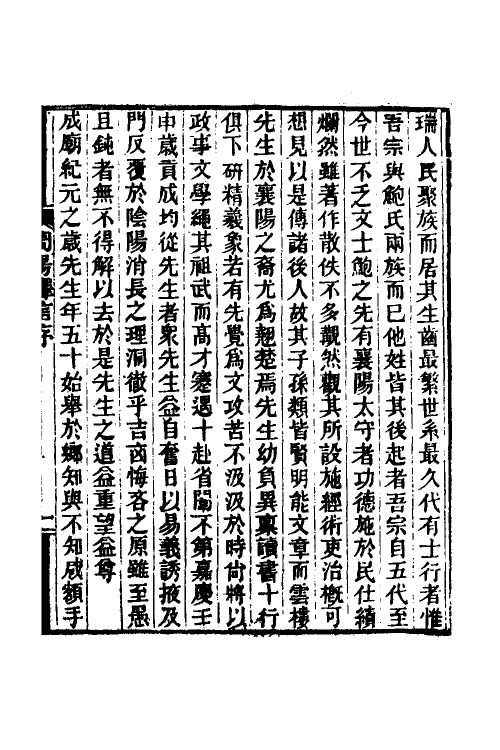 瑞人民聚族而居其生齒最繁世系最久代有士行者惟
吾宗與鮑氏兩族而巳他姓皆其後起者吾宗自五代至
今世不乏文士鮑之先有襄陽太守者功德施於民仕績
爛然雖著作散佚不多覯然觀其所設施經術吏治槪可
想見以是傳諸後人故其子孫類皆賢明能文章而雲樓
先生於襄陽之裔尤爲翹楚焉先生幼負異稟讀書十行
俱下硏精義象若有先覺爲文攻苦不汲汲於時尙將以
政事文學繩其祖武而高才蹇遇十赴省闈不第嘉慶壬
申歲貢成均從先生者衆先生益自奮日以易義誘掖及
門反覆於陰陽消長之理洞徹乎吉凶悔吝之原雖至愚
且鈍者無不得解以去於是先生之道益重望益尊
成廟紀元之歲先生年五十始舉於鄉知與不知咸額手
周易 言序